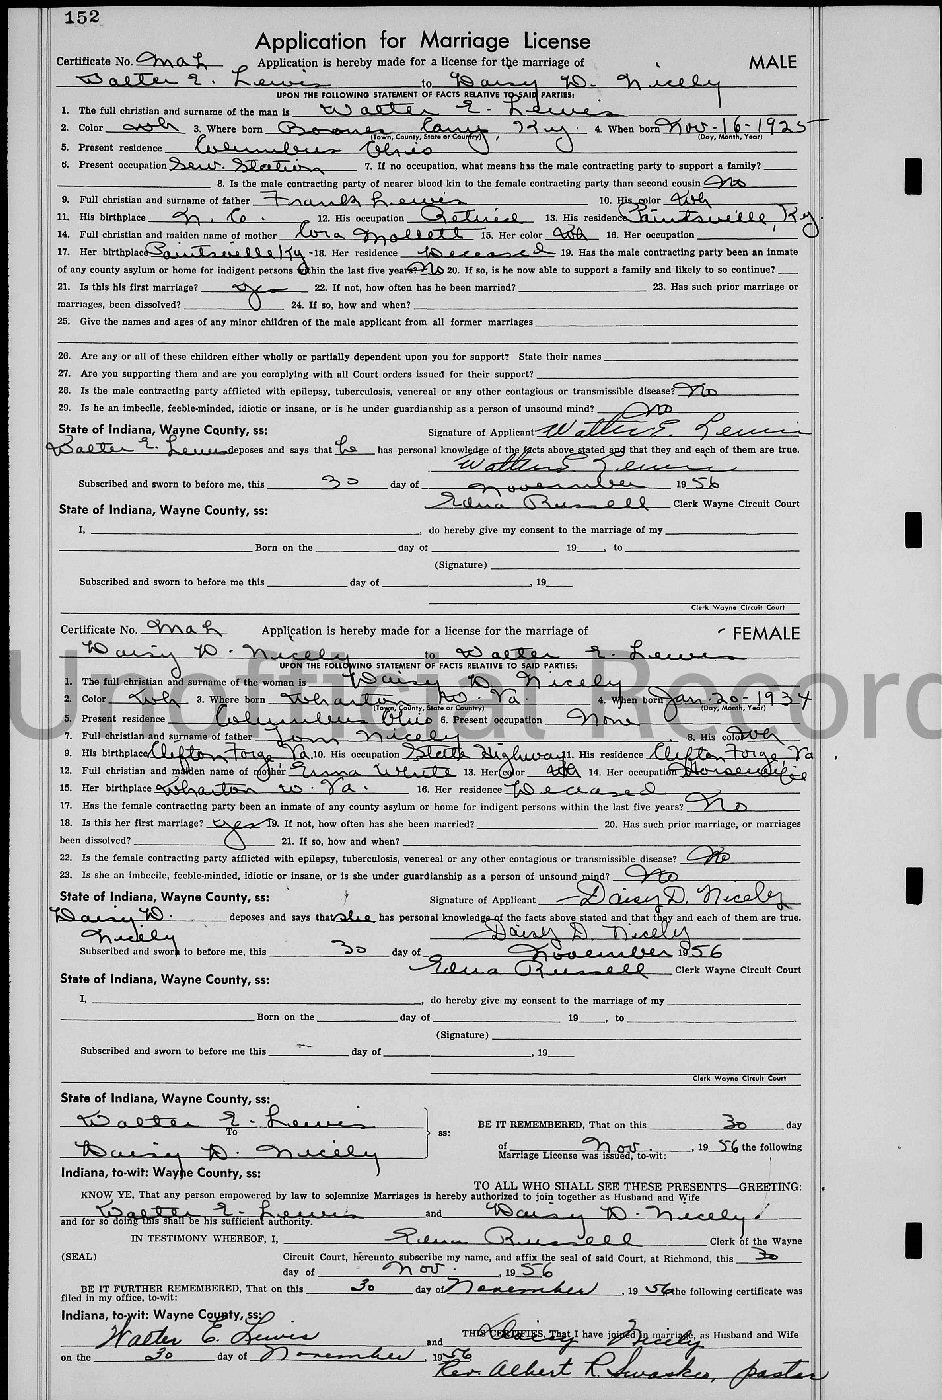 152
Application for Marriage License
Certificate No. Mah Application is hereby made for a license for the marriage of MALE
Walter E. Lewis to Daisy D. Nicely
UPON THE FOLLOWING STATEMENT OF FACTS RELATIVE TO SAID PARTIES:
1. The full christian and surname of the man is Walter E. Lewis
2. Color Wh 3. Where born Boones Camp, Ky. 4. When born Nov-16-1925
(Town, County, State or Country) (Day, Month, Year)
5. Present residence Columbus Ohio
6. Present occupation Serv. Station 7. If no occupation, what means has the male contracting party to support a family?
8. Is the male contracting party of nearer blood kin to the female contracting party than second cousin No
9. Full christian and surname of father Frank Lewis 10. His color Wh
11. His birthplace N. Co. 12. His occupation Retired 13. His residence Paintsville, Ky.
14. Full christian and maiden name of mother Cora Mollett 15. Her color Wh 16. Her occupation
17. Her birthplace Paintsville Ky - 18. Her residence Deceased 19. Has the male contracting party been an inmate
of any county asylum or home for indigent persons within the last five years? No 20. If so, is he now able to support a family and likely to so continue?
21. Is this his first marriage? yes 22. If not, how often has he been married? 23. Has such prior marriage or
marriages, been dissolved? 24. If so, how and when?
25. Give the names and ages of any minor children of the male applicant from all former marriages
26. Are any or all of these children either wholly or partially dependent upon you for support? State their names
27. Are you supporting them and are you complying with all Court orders issued for their support?
28. Is the male contracting party afflicted with epilepsy, tuberculosis, venereal or any other contagious or transmissible disease? No
29. Is he an imbecile, feeble-minded, idiotic or insane, or is he under guardianship as a person of unsound mind? No
State of Indiana, Wayne County, ss: Signature of Applicant Walter E. Lewis
Walter E. Lewis deposes and says that he has personal knowledge of the facts above stated and that they and each of them are true.
Walter E Lewis
Subscribed and sworn to before me, this 30 day of November 1956
Edna Russell Clerk Wayne Circuit Court
State of Indiana, Wayne County, ss:
I, , do hereby give my consent to the marriage of my
Born on the day of 19 , to
(Signature)
Subscribed and sworn to before me this day of , 19
Clerk Wayne Circuit Court
Certificate No. Mah Application is hereby made for a license for the marriage of FEMALE
Daisy D. Nicely to Walter E. Lewis
UPON THE FOLLOWING STATEMENT OF FACTS RELATIVE TO SAID PARTIES:
Unofficial Record
1. The full christian and surname of the woman is Daisy D. Nicely
2. Color Wh 3. Where born Wharton, W. Va. 4. When born Jan-20-1934
(Town, County, State or Country) (Day, Month, Year)
5. Present residence Columbus Ohio 6. Present occupation None
7. Full christian and surname of father Tom Nicely 8. His color Wh
9. His birthplace Clifton Forge, Va 10. His occupation State Highway 11. His residence Clifton Forge, Va
12. Full christian and maiden name of mother Emma White 13. Her color Wh 14. Her occupation Housewife
15. Her birthplace Wharton W. Va. 16. Her residence Deceased
17. Has the female contracting party been an inmate of any county asylum or home for indigent persons within the last five years? No
18. Is this her first marriage? yes 19. If not, how often has she been married? 20. Has such prior marriage, or marriages
been dissolved? 21. If so, how and when?
22. Is the female contracting party afflicted with epilepsy, tuberculosis, venereal or any other contagious or transmissible disease? No
23. Is she an imbecile, feeble-minded, idiotic or insane, or is she under guardianship as a person of unsound mind? No
State of Indiana, Wayne County, ss: Signature of Applicant Daisy D. Nicely
Daisy D. Nicely deposes and says that she has personal knowledge of the facts above stated and that they and each of them are true.
Daisy D. Nicely
Subscribed and sworn to before me, this 30 day of November 1956
Edna Russell Clerk Wayne Circuit Court
State of Indiana, Wayne County, ss:
I, , do hereby give my consent to the marriage of my
Born on the day of 19 , to
(Signature)
Subscribed and sworn to before me this day of , 19
Clerk Wayne Circuit Court
State of Indiana, Wayne County, ss:
Walter E. Lewis
To
Daisy D. Nicely
ss: BE IT REMEMBERED, That on this 30 day
of Nov. , 1956 the following
Marriage License was issued, to-wit:
Indiana, to-wit: Wayne County, ss:
TO ALL WHO SHALL SEE THESE PRESENTS—GREETING:
KNOW YE, That any person empowered by law to solemnize Marriages is hereby authorized to join together as Husband and Wife
Walter E. Lewis and Daisy D. Nicely
and for so doing this shall be his sufficient authority.
IN TESTIMONY WHEREOF, I, Edna Russell Clerk of the Wayne
(SEAL) Circuit Court, hereunto subscribe my name, and affix the seal of said Court, at Richmond, this 30
day of Nov. , 1956
BE IT FURTHER REMEMBERED, That on this 30 day of November , 1956 the following certificate was
filed in my office, to-wit:
Indiana, to-wit: Wayne County, ss:
THIS CERTIFIES, That I have joined in marriage, as Husband and Wife
Walter E. Lewis and Daisy Nicely
on the 30 day of November , 1956
Rev. Albert R. , pastor